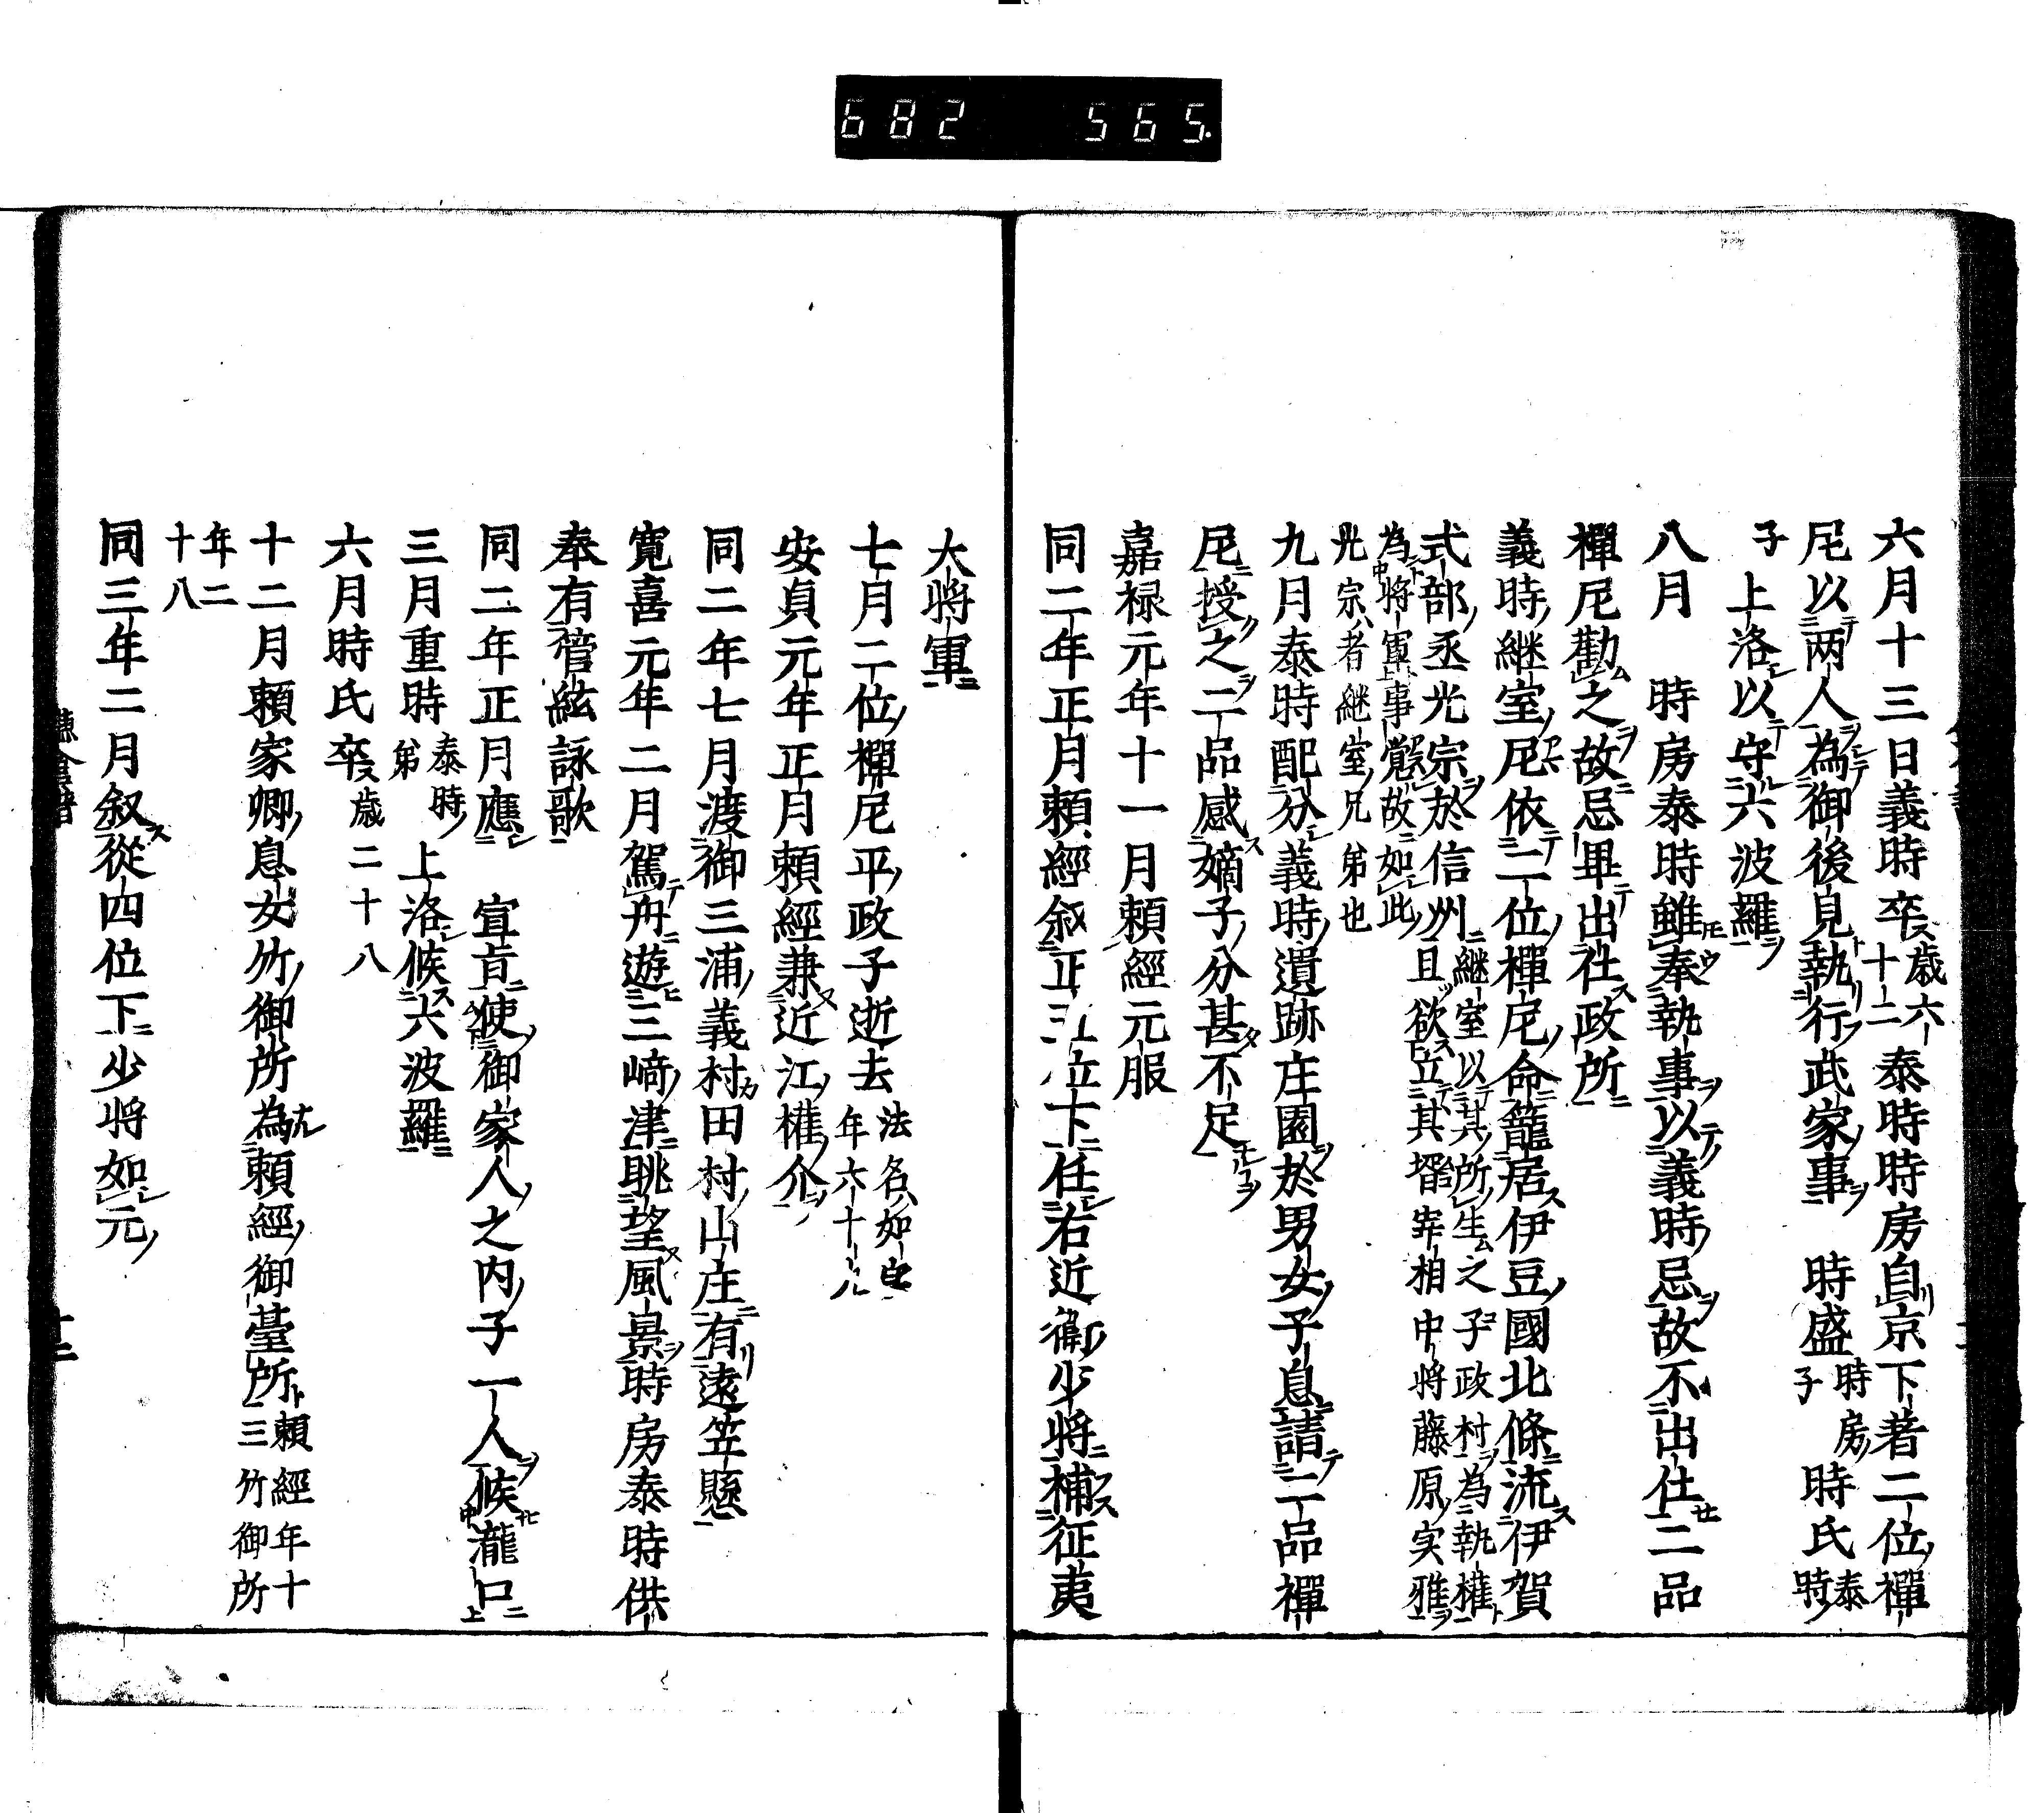 682 565.
六月十三日義時卒歳六十二泰時時房自京下著二位禪
尼以两人為御後見執行武家事 時盛時房子時氏泰時
子上洛以守六波羅
八月 時房泰時雖奉執事以義時忌故不出仕二品
禪尼勸之故忌畢出仕政所
義時継室尼依二位禪尼命籠居伊豆國北條流伊賀
式部丞光宗於信州継室以其所生之子政村為執権且欲立其壻宰相中将藤原実雅
為将軍事覚故如此光宗者継室兄弟也
九月泰時配分義時遺跡庄園於男女子息請二品禪
尼授之二品感嫡子分甚不足
嘉禄元年十一月頼經元服
同二年正月頼經叙正五位下任右近衛少将補征夷
大将軍
七月二位禪尼平政子逝去法名如実年六十九
安貞元年正月頼經兼近江権介
同二年七月渡御三浦義村田村山庄有遠笠懸
寛喜元年二月駕舟遊三﨑津眺望風景時房泰時供
奉有管絃詠歌
同二年正月應 宣旨使御家人之内子一人候瀧口
三月重時泰時弟上洛候六波羅
六月時氏卒歳二十八
十二月頼家卿息女竹御所為頼經御臺所頼經年十三竹御所
年二十八
同三年二月叙從四位下少将如元